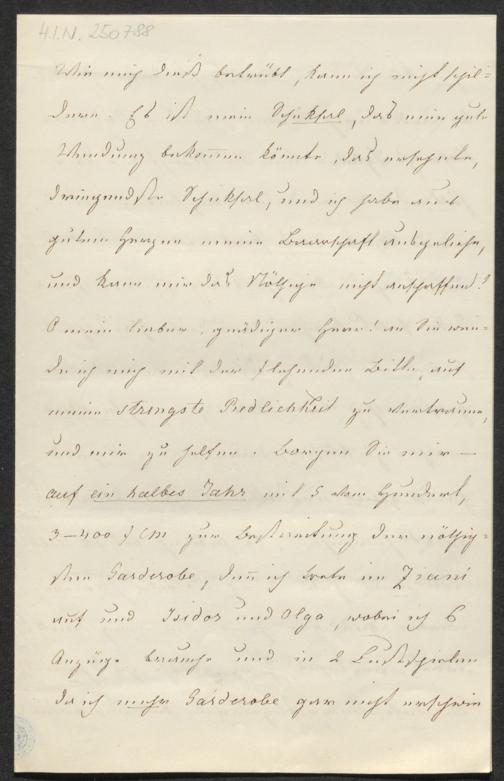 H.I.N. 250788
Wie mich dieß betrübt, kann ich nicht schil=
dern. Es ist mein Schiksal, das eine gute
Wendung bekommen könnte, das ersehnte,
dringendste Schiksal, und ich habe aus
gutem Herzen meine Baarschaft ausgeliehe,
und kann mir das Nöthige nicht anschaffen!
O mein lieber, gnädiger Herr! an Sie wen=
de ich mich mit der flehenden Bitte, auf
meine strengste Redlichkeit zu vertrauen,
und mir zu helfen. Borgen Sie mir —
auf ein halbes Jahr mit 5 vom Hundert,
3–400 f CM zur Bestreitung der nöthig=
sten Garderobe, denn ich trete im Ziani
auf und Isidor und Olga, wobei ich 6
Anzüge brauche und in 2 Lustspielen
da ich mehr Garderobe gar nicht erschein